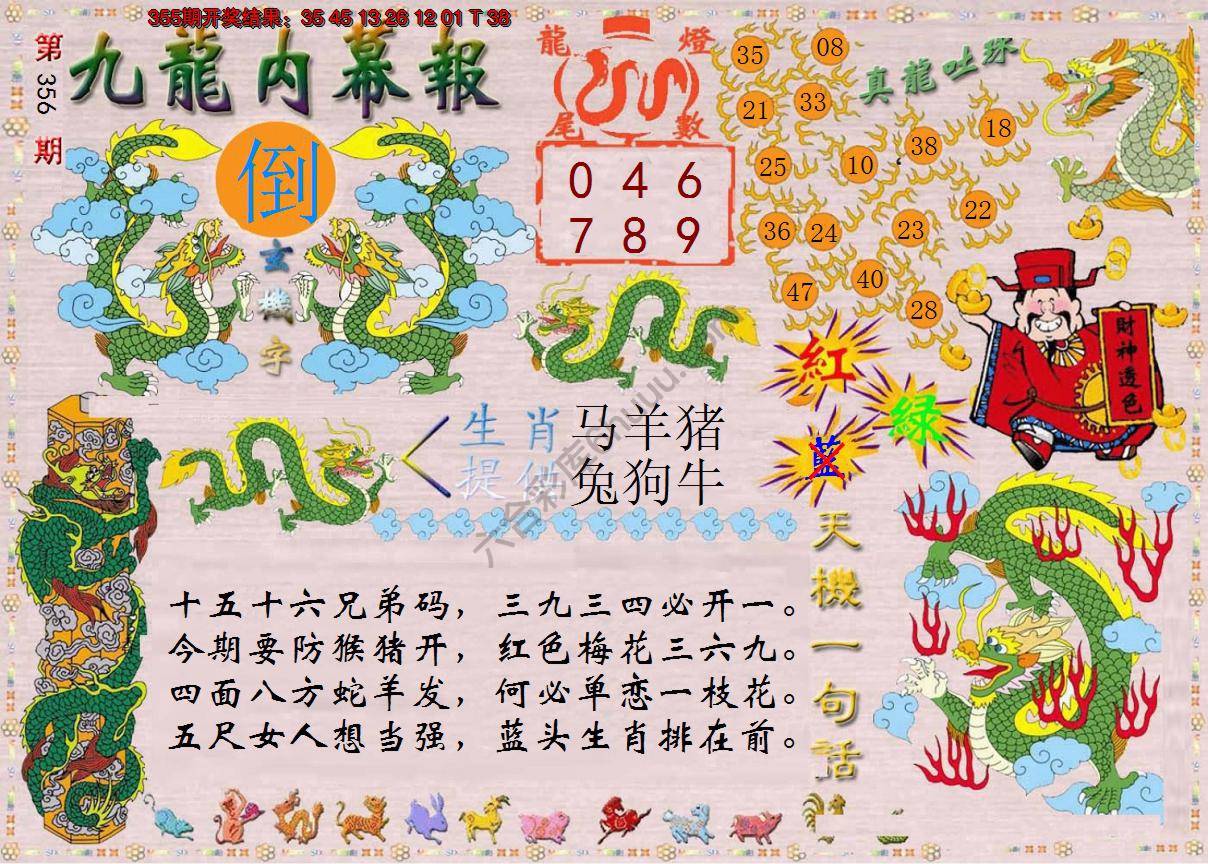 355期开奖结果：35 45 13 26 12 01 T 38
第356期
九龍内幕報
倒
玄機字
龍燈
尾數
0 4 6
7 8 9
真龍吐珠
35 08
21 33
25 10 38 18
36 24 23 22
47 40 28
財神透色
紅
綠
藍
生肖 马羊猪
提供 兔狗牛
六合彩库
十五十六兄弟码，三九三四必开一。
今期要防猴猪开，红色梅花三六九。
四面八方蛇羊发，何必单恋一枝花。
五尺女人想当强，蓝头生肖排在前。
天機一句話